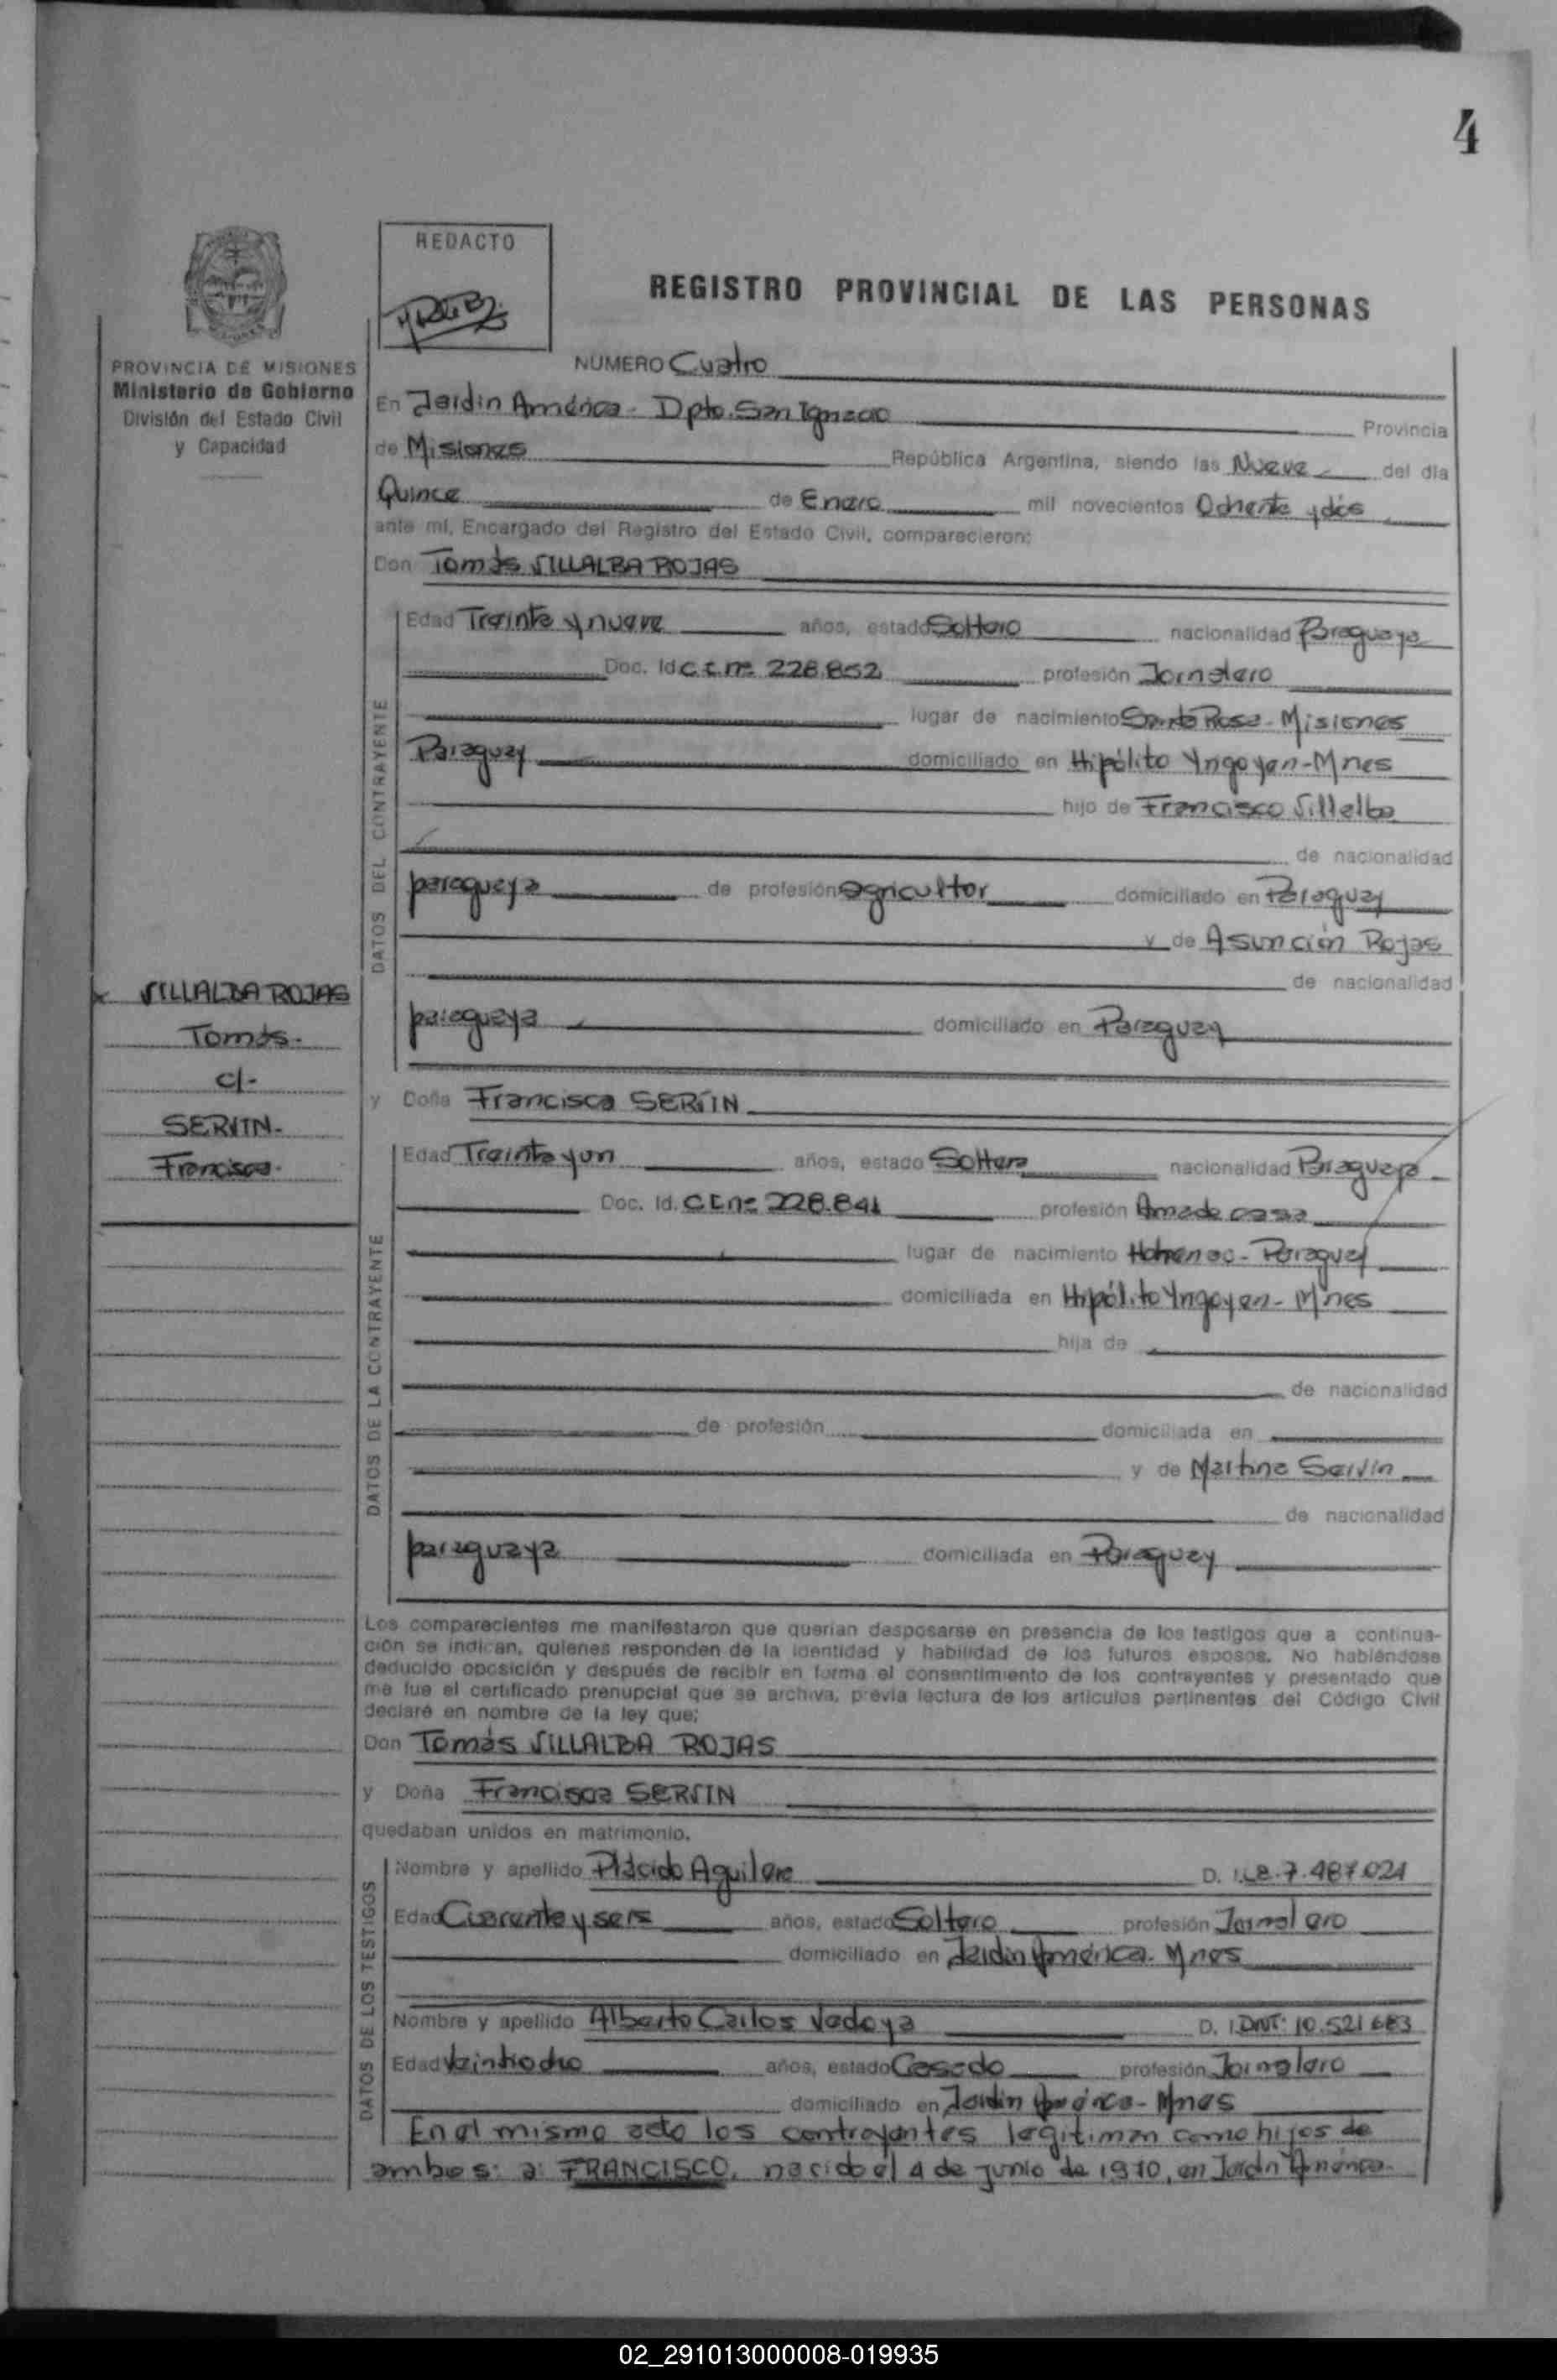 4
REDACTO
REGISTRO PROVINCIAL DE LAS PERSONAS
PROVINCIA DE MISIONES
Ministerio de Gobierno
División del Estado Civil
y Capacidad
NUMERO Cuatro
En Jardín América - Dpto. San Ignacio Provincia
de Misiones República Argentina, siendo las Nueve del día
Quince de Enero mil novecientos Ochenta y dós
ante mí, Encargado del Registro del Estado Civil, comparecieron:
Don Tomás VILLALBA ROJAS
DATOS DEL CONTRAYENTE
Edad Treinta y nueve años, estado Soltero nacionalidad Paraguaya
Doc. Id C.I.nº 228.852 profesión Jornalero
lugar de nacimiento Santa Rosa - Misiones
Paraguay domiciliado en Hipólito Yrigoyen - Mnes
hijo de Francisco Villalba
de nacionalidad
paraguaya de profesión agricultor domiciliado en Paraguay
y de Asunción Rojas
de nacionalidad
paraguaya domiciliado en Paraguay
VILLALBA ROJAS
Tomás.
c/-
SERVIN.
Francisca.
y Doña Francisca SERVIN
DATOS DE LA CONTRAYENTE
Edad Treinta y un años, estado Soltera nacionalidad Paraguaya
Doc. Id. C.I.nº 228.841 profesión Ama de casa
lugar de nacimiento Hohenau - Paraguay
domiciliada en Hipólito Yrigoyen - Mnes
hija de
de nacionalidad
de profesión domiciliada en
y de Martina Servín
de nacionalidad
paraguaya domiciliada en Paraguay
Los comparecientes me manifestaron que querían desposarse en presencia de los testigos que a continua-
ción se indican, quienes responden de la identidad y habilidad de los futuros esposos. No habiéndose
deducido oposición y después de recibir en forma el consentimiento de los contrayentes y presentado que
me fue el certificado prenupcial que se archiva, previa lectura de los artículos pertinentes del Código Civil
declaré en nombre de la ley que;
Don Tomás VILLALBA ROJAS
y Doña Francisca SERVIN
quedaban unidos en matrimonio.
DATOS DE LOS TESTIGOS
Nombre y apellido Plácido Aguilera D. I. L.E. 7.487.024
Edad Cuarenta y seis años, estado Soltero profesión Jornalero
domiciliado en Jardín América - Mnes
Nombre y apellido Alberto Carlos Vedoya D. I. DNI: 10.521.683
Edad Veintiocho años, estado Casado profesión Jornalero
domiciliado en Jardín América - Mnes
En el mismo acto los contrayentes legitiman como hijos de
ambos: a: FRANCISCO, nacido el 4 de junio de 1970, en Jardín América.
02_291013000008-019935